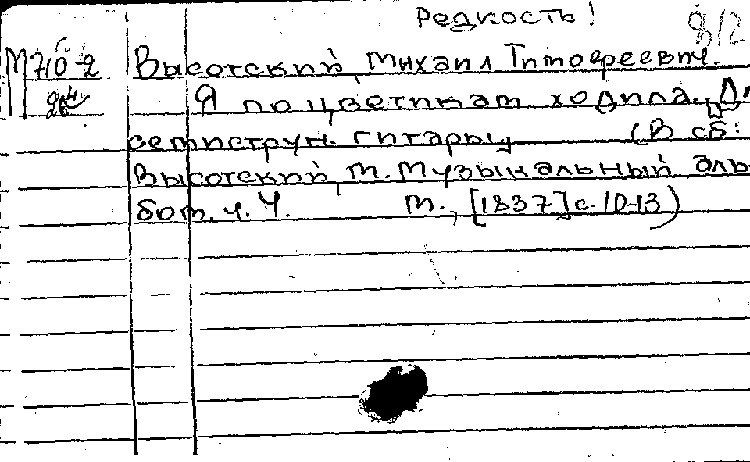 Редкость! 8/2
М 710-2 Высотский, Михаил Тимофеевич.
Я по цветикам ходила. Дл
семиструн. гитары (В сб:
Высотский, М. Музыкальный аль
бом. ч. 4. М., [1837] с. 10-13)